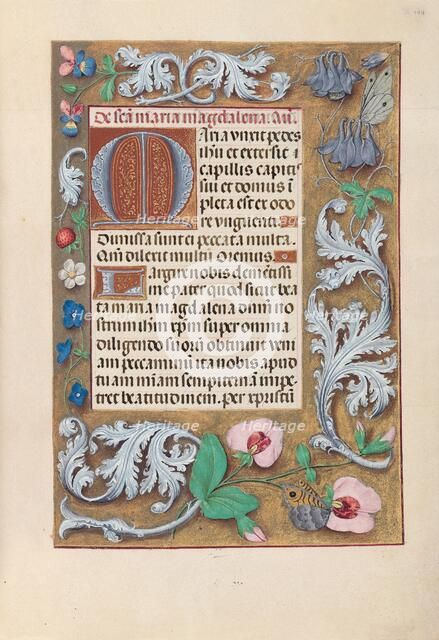 De scā maria magdalena. Añ.
Maria unxit pedes
ihū et extersit
capillis capitis
sui et domus ī
pleta est ex odo
re unguenti.
Dimissa sunt ei peccata multa.
Qm̄ dilexit multū. Oremus.
Largire nobis clemētissi
me pater quod sicut bea
ta maria magdalena dn̄m no
strum ihm̄ xp̄m super omnia
diligendo suorū obtinuit veni
am peccaminū ita nobis apud
tuam mīam sempiternā impe
tret beatitudinem. per xp̄m
Heritage
Heritage
Heritage
Heritage
Heritage
Heritage